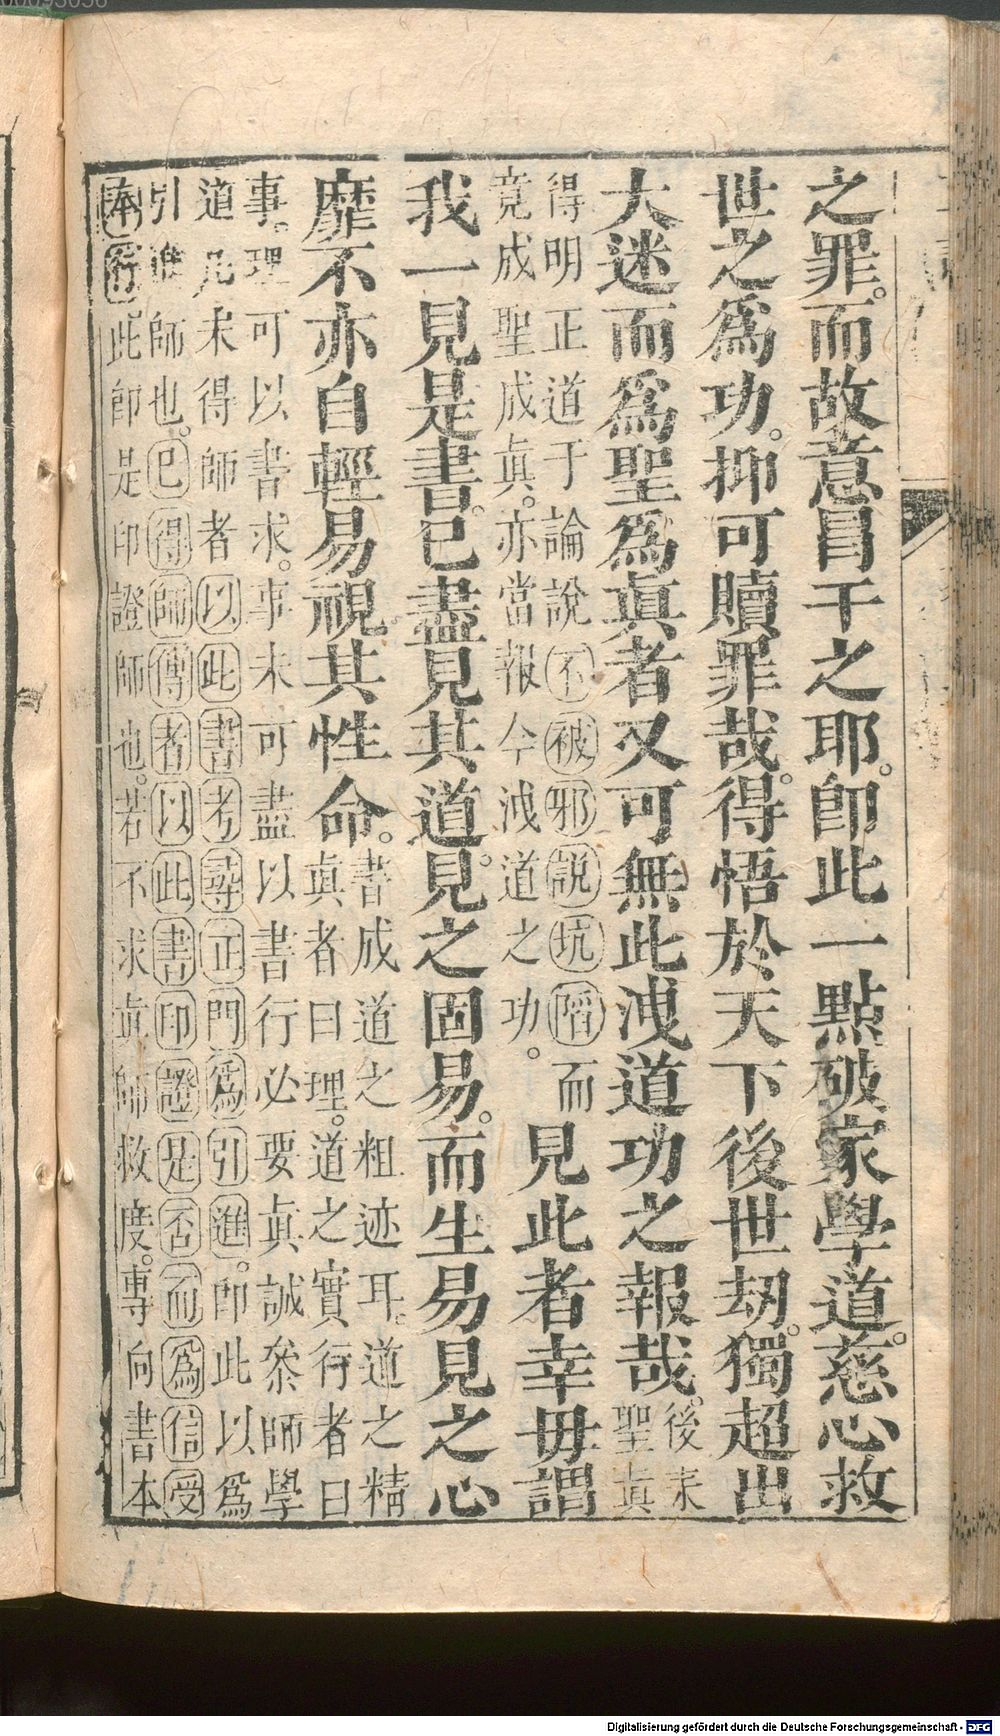 之罪。而故意冒干之耶。卽此一點破家學道。慈心救
世之爲功。抑可贖罪哉。得悟於天下後世劫。獨超出
大迷而爲聖爲眞者又可無此洩道功之報哉。後來聖眞
得明正道于論說不被邪說坑陷而
竟成聖成眞。亦當報今洩道之功。
見此者幸毋謂
我一見是書。已盡見其道。見之固易。而生易見之心
靡不亦自輕易視其性命。
書成道之粗迹耳。道之精
眞者曰理。道之實行者曰
事。理可以書求。事未可盡以書行必要眞誠叅師學
道凡未得師者以此書考尋正門爲引進。卽此以爲
引進師也。已得師傳者以此書印證是否而爲信受
奉行此卽是印證師也。若不求眞師救度。專向書本
00093056
Digitalisierung gefördert durch die Deutsche Forschungsgemeinschaft - DFG